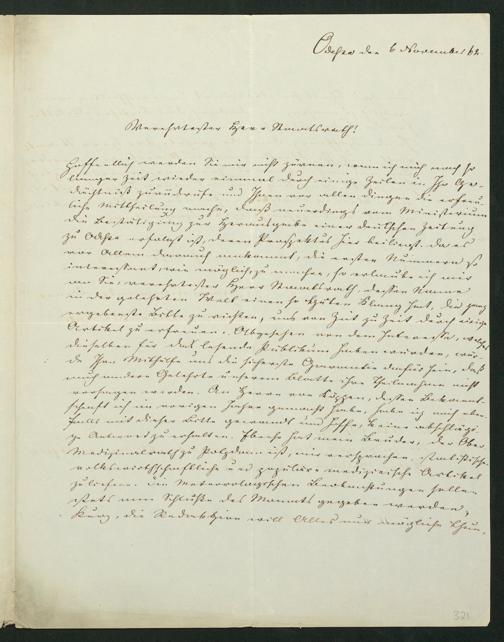 Odessa den 6 November 62.
Verehrtester Herr Staatsrath!
Hoffentlich werden Sie mir nicht zürnen, wenn ich mich nach so
langer Zeit wieder einmal durch einige Zeilen in Ihr Ge-
dächtniß zurückrufe und Ihnen vor allen Dingen die erfreu-
liche Mittheilung mache, daß neuerdings vom Ministerium
die Bestätigung zur Herausgabe einer deutschen Zeitung
zu Odessa erfolgt ist, deren Prospektus hier beiliegt. Da es
vor Allem darauf ankommt, die ersten Nummern so
interessant, wie möglich, zu machen, so erlaube ich mir
an Sie, verehrtester Herr Staatsrath, dessen Name
in der gelehrten Welt einen so guten Klang hat, die ganz
ergebenste Bitte zu richten, uns von Zeit zu Zeit durch einige
Artikel zu erfreuen. Abgesehen von dem Interesse, welches
dieselben für das lesende Publikum haben würden, wür-
de Ihre Mithilfe uns die sicherste Garantie dafür sein, daß
auch andere Gelehrte unserem Blatte ihre Theilnahme nicht
versagen werden. An Herrn von Köppen, dessen Bekannt-
schaft ich im vorigen Jahre gemacht habe, habe ich mich eben-
falls mit dieser Bitte gewandt und hoffe, keine abschlägi-
ge Antwort zu erhalten. Ebenso hat mein Bruder, der Ober
Medizinalrath zu Potsdam ist, mir versprochen, statistische
volkswirthschaftliche und populäre medizinische Artikel
zu liefern. Die Meteorologischen Beobachtungen sollen
stets am Schluße des Monats gegeben werden,
Kurz, die Redaktion will Alles nur mögliche thun,
321